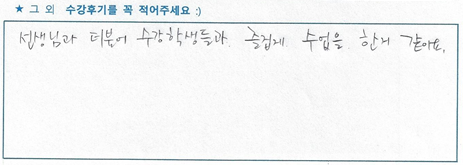 ★ 그 외 수강후기를 꼭 적어주세요 :)
선생님과 더불어 수강학생들과 즐겁게 수업을 한거 같아요.